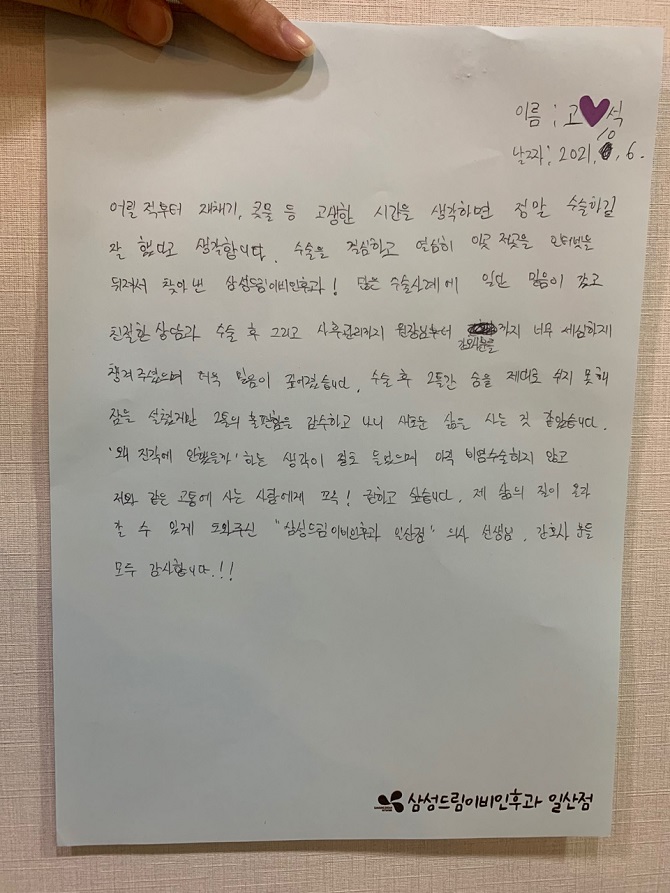 이름 : 고 석
날짜 : 2021. 10. 6.
어릴 적부터 재채기, 콧물 등 고생한 시간을 생각하면 정말 수술하길
잘 했다고 생각합니다. 수술을 결심하고 열심히 이곳 저곳을 인터넷을
뒤져서 찾아 낸 삼성드림이비인후과! 많은 수술사례에 일단 믿음이 갔고
친절한 상담과 수술 후 그리고 사후관리까지 원장님부터 간호사분들까지 너무 세심하게
챙겨주셨으며 더욱 믿음이 깊어졌습니다. 수술 후 2틀간 숨을 제대로 쉬지 못해
잠을 설쳤지만 2틀의 불편함을 감수하고 나니 새로운 삶을 사는 것 같았습니다.
'왜 진작에 안했을까' 하는 생각이 절로 들었으며 아직 비염수술하지 않고
저와 같은 고통에 사는 사람에게 꼭! 권하고 싶습니다. 제 삶의 질이 올라
갈 수 있게 도와주신 "삼성드림이비인후과 일산점" 의사 선생님, 간호사 분들
모두 감사합니다.!!
삼성드림이비인후과 일산점